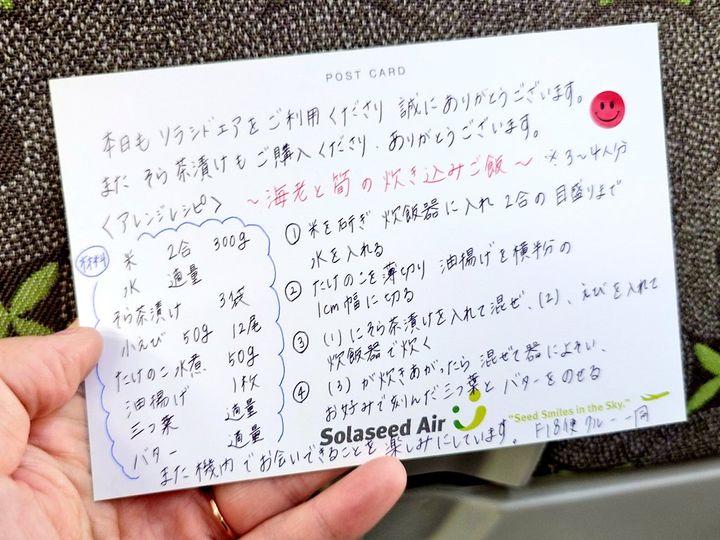 POST CARD
本日も ソラシドエアをご利用くださり 誠にありがとうございます。
また そら茶漬けもご購入くださり、ありがとうございます。
〈アレンジレシピ〉
～海老と筍の炊き込みご飯～ ※3～4人分
材料
米 2合 300g
水 適量
そら茶漬け 3袋
小えび 50g 12尾
たけのこ水煮 50g
油揚げ 1枚
三つ葉 適量
バター 適量
① 米を研ぎ 炊飯器に入れ 2合の目盛りまで
水を入れる
② たけのこを薄切り 油揚げを横
1cm幅に切る
③ (1)にそら茶漬けを入れて混ぜ、(2)、えびを入れて
炊飯器で炊く
④ (3)が炊きあがったら 混ぜて器によそい、
お好みで刻んだ三つ葉と バターをのせる
Solaseed Air
"Seed Smiles in the Sky."
また機内でお会いできることを楽しみにしています。 クルー 一同